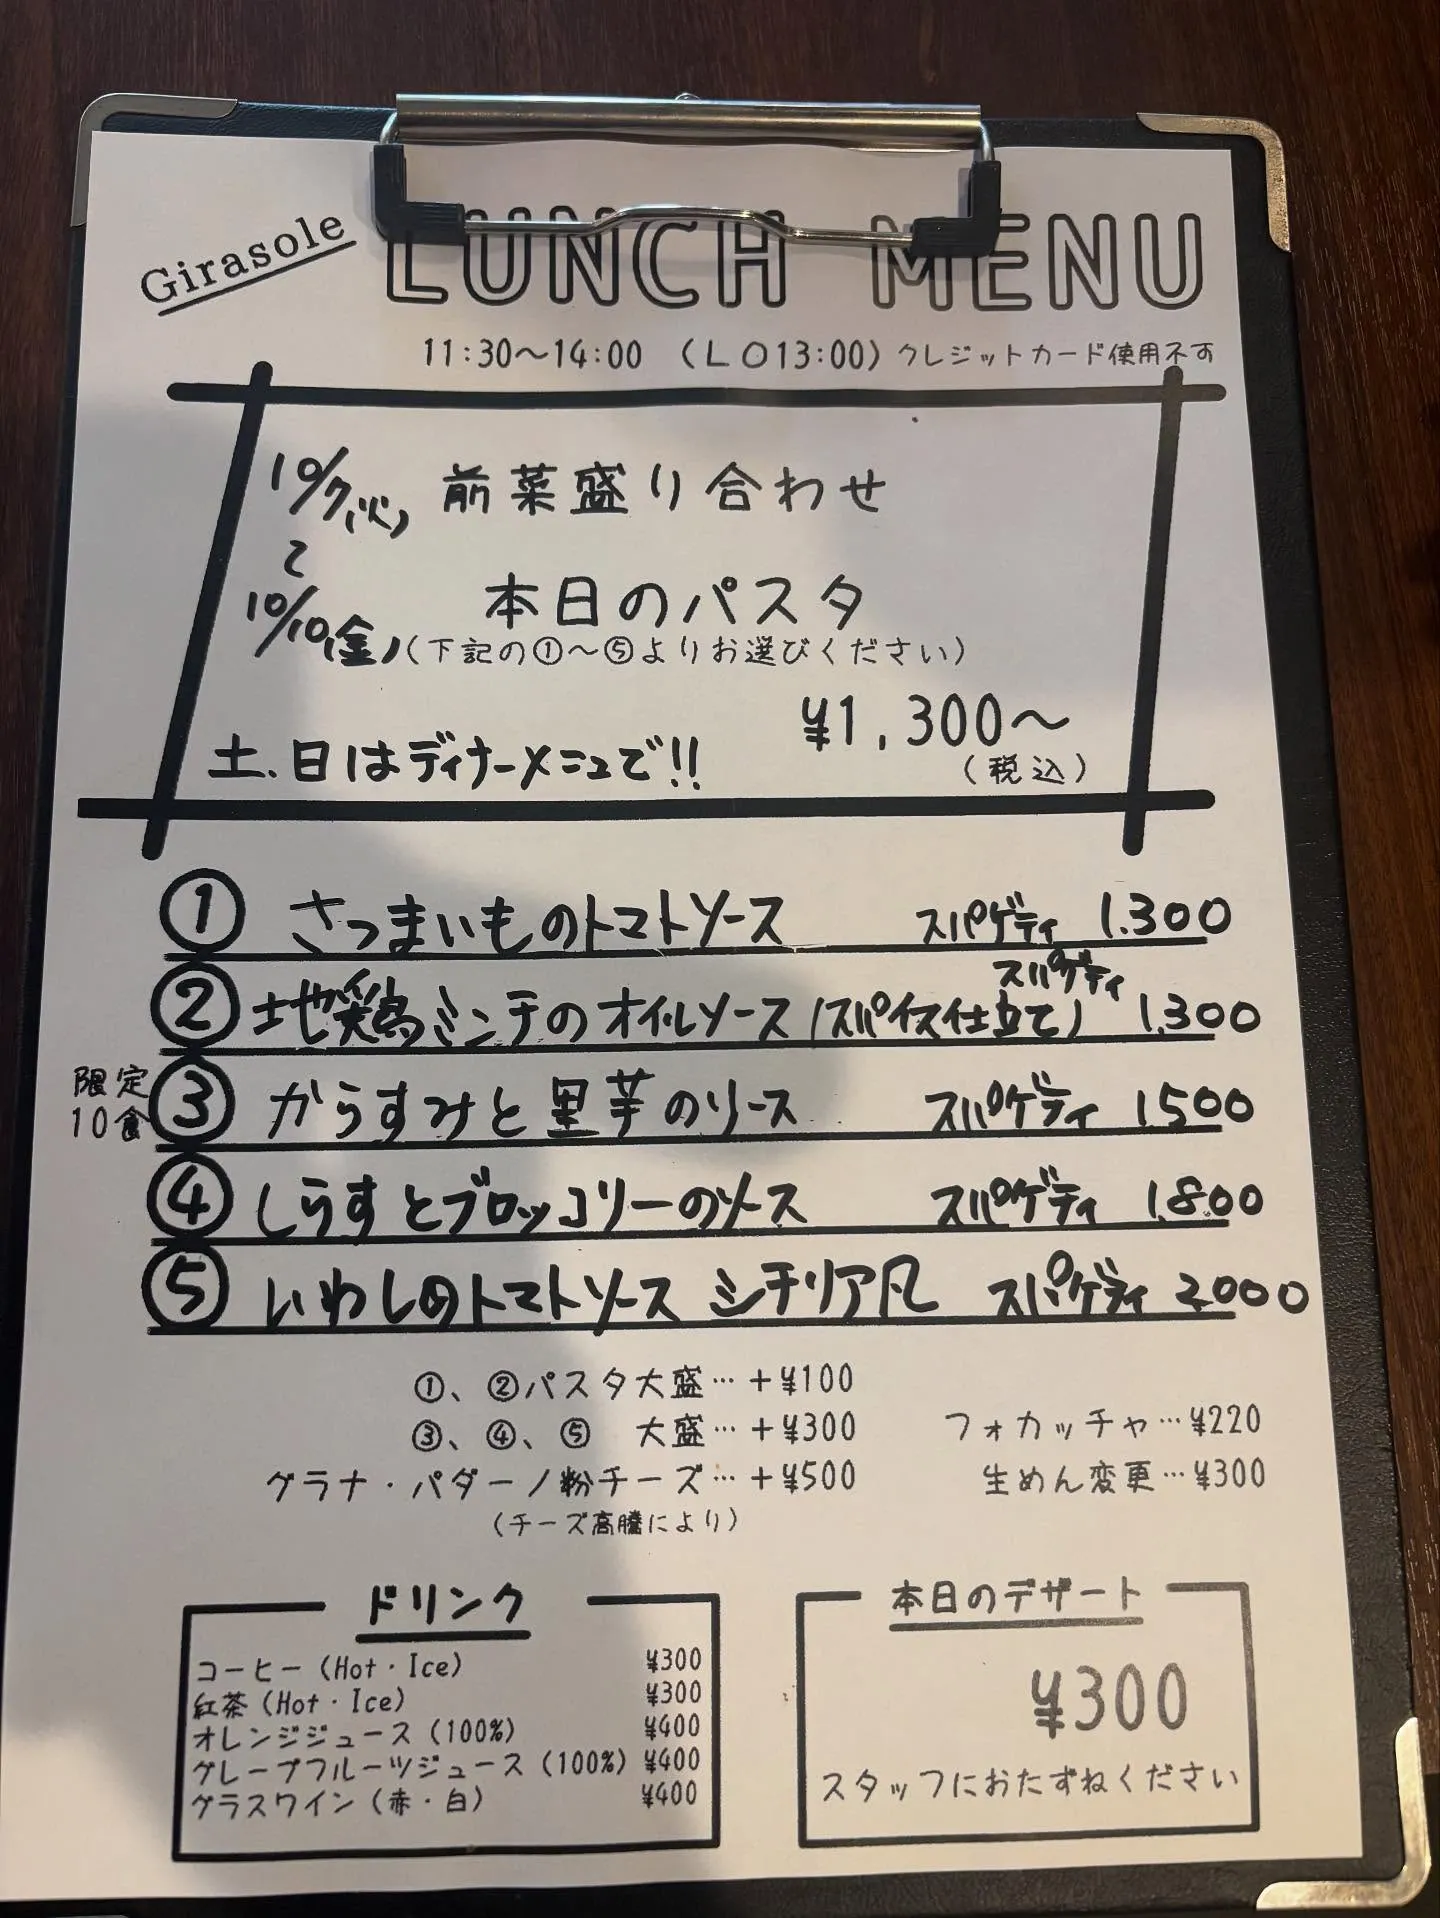 Girasole
LUNCH MENU
11:30～14:00 (LO13:00) クレジットカード使用不可
10/7(火) 前菜盛り合わせ
～
10/10(金) 本日のパスタ
(下記の①～⑤よりお選びください)
¥1,300～
土、日はディナーメニューで!!
(税込)
① さつまいものトマトソース スパゲティ 1.300
② 地鶏ミンチのオイルソース(スパイス仕立て) スパゲティ 1.300
限定10食 ③ からすみと里芋のソース スパゲティ 1.500
④ しらすとブロッコリーのソース スパゲティ 1.800
⑤ いわしのトマトソース シチリア風 スパゲティ 2.000
①、②パスタ大盛…+¥100
③、④、⑤ 大盛…+¥300
フォカッチャ…¥220
グラナ・パダーノ粉チーズ…+¥500
生めん変更…¥300
(チーズ高騰により)
ドリンク
コーヒー(Hot・Ice) ¥300
紅茶(Hot・Ice) ¥300
オレンジジュース(100%) ¥400
グレープフルーツジュース(100%) ¥400
グラスワイン(赤・白) ¥400
本日のデザート
¥300
スタッフにおたずねください